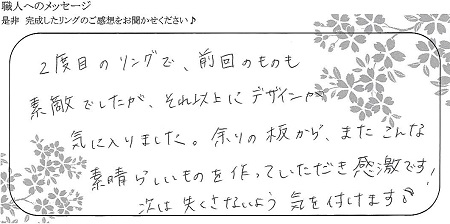 職人へのメッセージ
是非 完成したリングのご感想をお聞かせください♪
2度目のリングで、前回のものも
素敵でしたが、それ以上にデザインが
気に入りました。余りの板から、またこんな
素晴らしいものを作っていただき感激です!
次は失くさないよう気を付けます♪